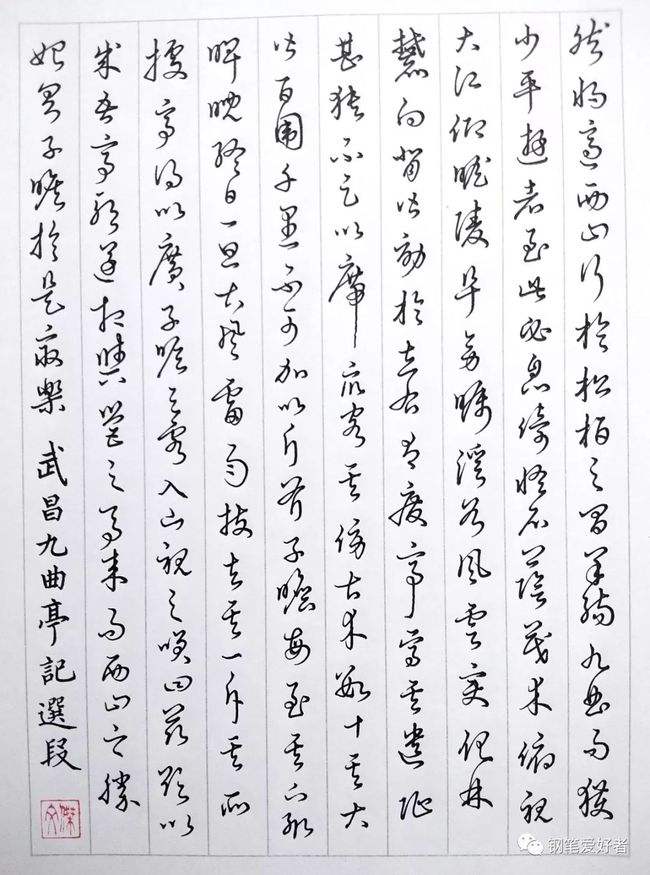 然將適西山行於松柏之間羊腸九曲而獲
少平遊者至此必息倚怪石蔭茂木俯視
大江仰瞻陵阜旁矚溪谷風雲變化林
麓向背皆效於左右有廢亭焉其遺址
甚狹不足以席眾客其傍古木數十其大
皆百围千不可加以斤斧子瞻每至其下輒
睥睨終日一旦大風雷雨拔去其一斥其所
據亭得以廣子瞻與客入山視之笑曰茲欲以
成吾亭邪遂相與營之亭成而西山之勝
始具子瞻於是最樂 武昌九曲亭記選段
钢笔爱好者